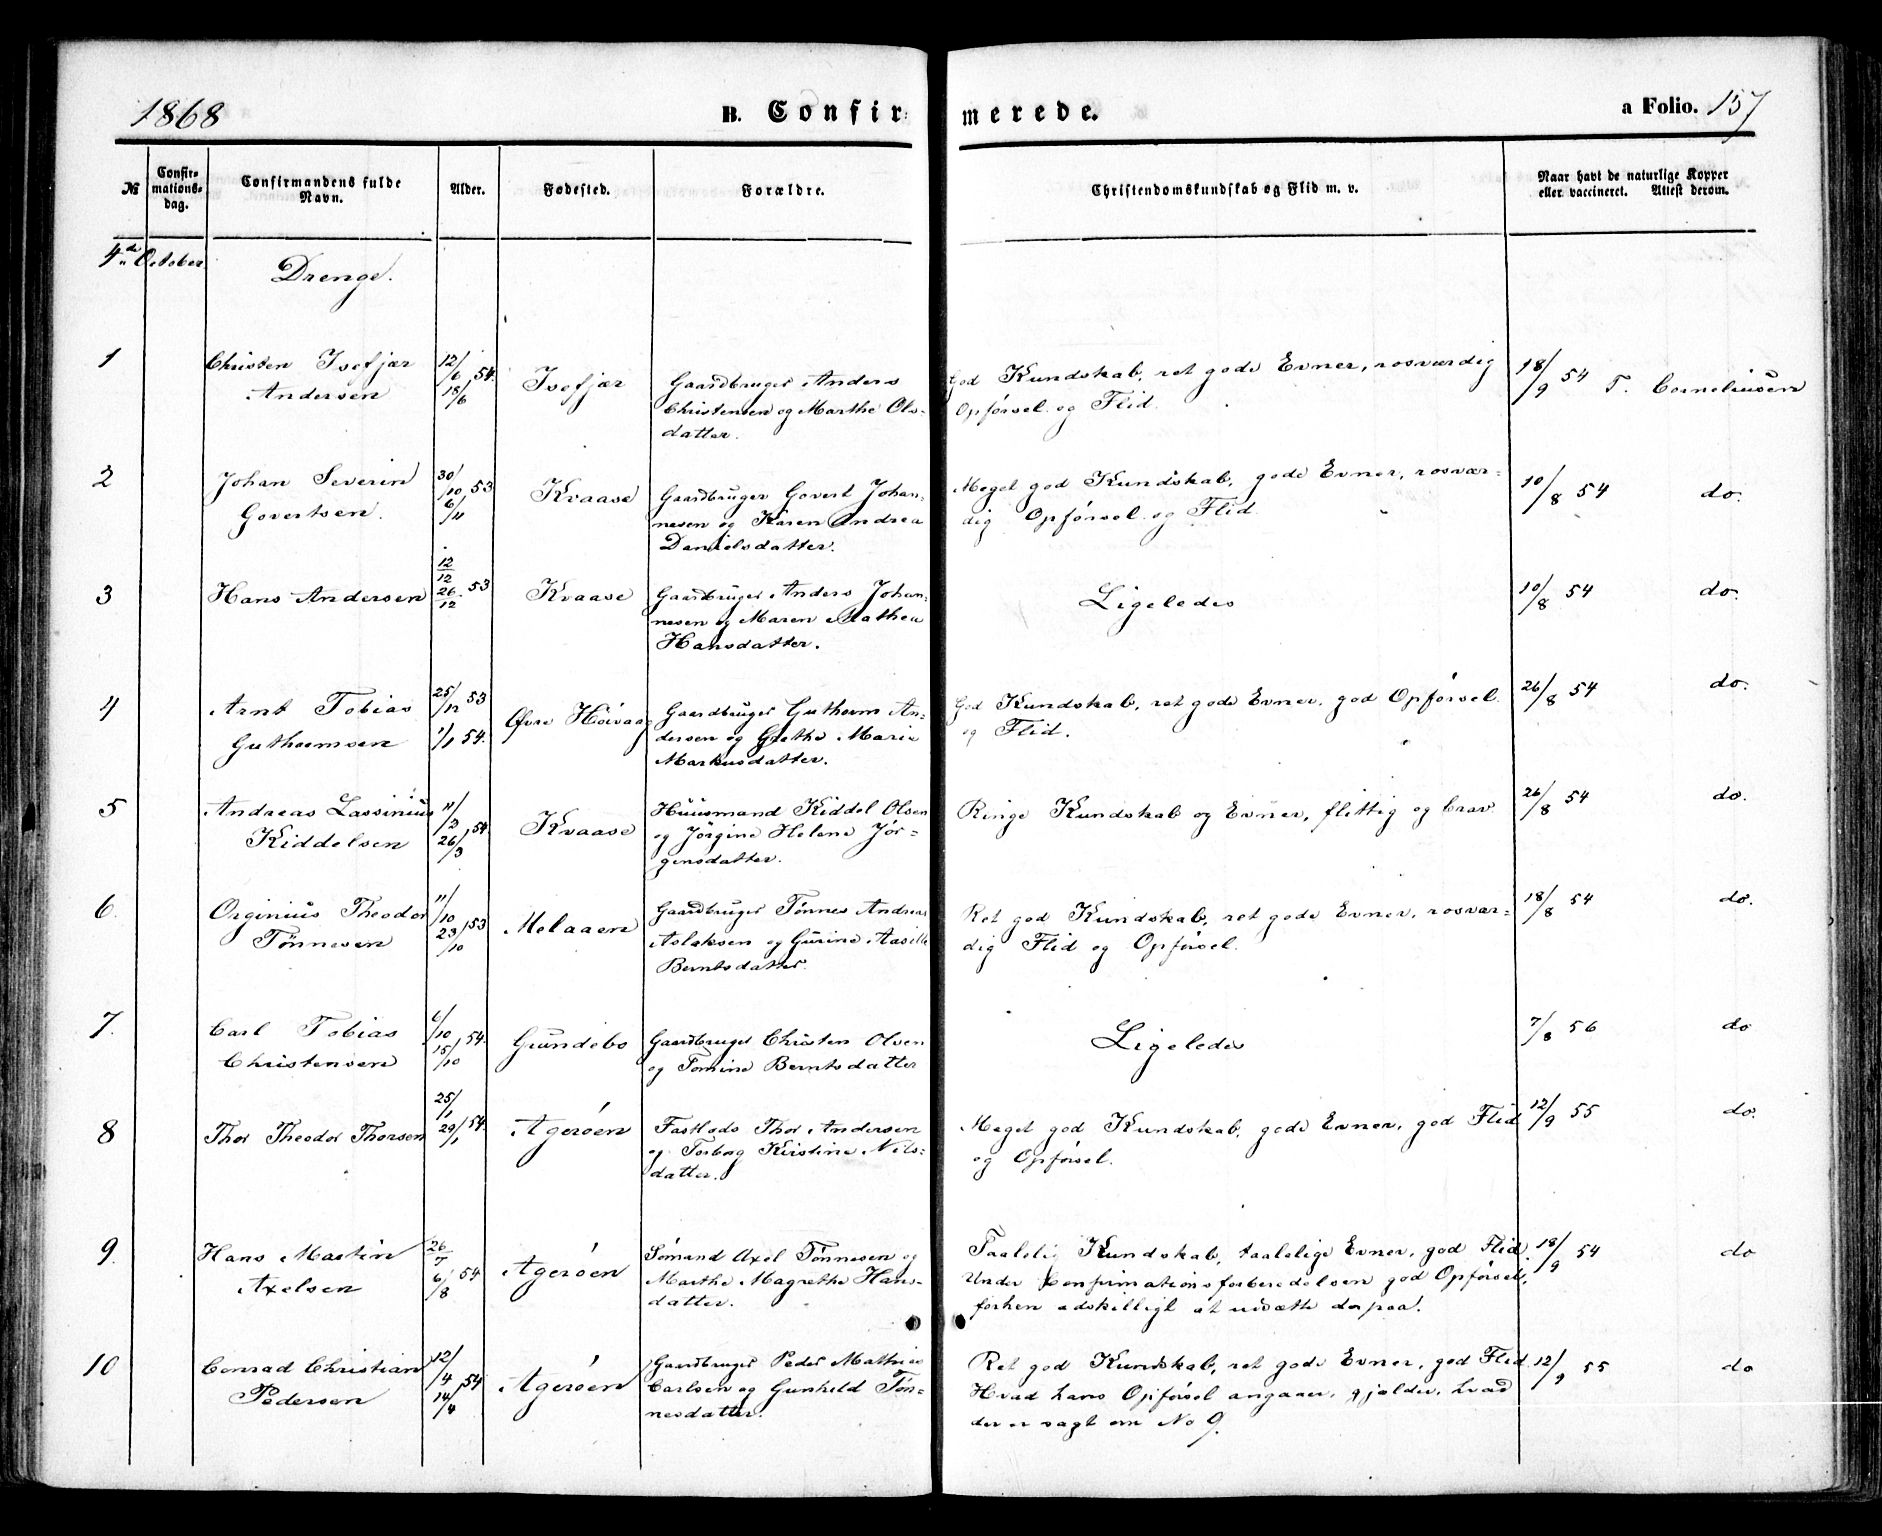 1868 B. Confirmerede. a Folio. 157
No
Confirmationsdag.
Confirmandens fulde Navn.
Alder.
Fødested.
Forældre.
Christendomskundskab og Flid m. v.
Naar havt de naturlige Kopper eller vaccineret. Attest derom.
4de October
Drenge.
1 Christen Isefjær 12/6 54.
Andersen 18/6
Isefjær
Gaardbruger Anders
Christensen og Marthe Ols-
datter.
God Kundskab, ret gode Evner, rosværdig
Opførsel og Flid.
18/9 54 T. Corneliusen
2 Johan Severin 30/10 53
Govertsen. 6/11
Kvaase
Gaardbruger Govert Johan-
nesen og Karen Andrea
Danielsdatter.
Meget god Kundskab, gode Evner, rosvær-
dig Opførsel og Flid.
10/8 54 do.
3 Hans Andersen 12/12 26/12 53
Kvaase
Gaardbruger Anders Johan-
nesen og Maren Mathea
Hansdatter.
Ligeledes
10/8 54 do.
4 Arnt Tobias 25/12 53
Guthormsen 1/1 54.
Øvre Höivaag
Gaardbruger Guthorm An-
dersen og Grethe Marie
Markusdatter.
God Kundskab, ret gode Evner, god Opførsel
og Flid.
26/8 54 do.
5 Andreas Lassinius 11/2 54
Kiddelsen 26/3
Kvaase
Huusmand Kiddel Olsen
og Jørgine Helene Jør-
gensdatter.
Ringe Kundskab og Evner, flittig og brav
26/8 54 do.
6. Orginius Theodor 11/10 53
Tønnesen 23/10
Melaaen
Gaardbruger Tønnes Andreas
Aslaksen og Gurine Aasille
Berntsdatter.
Ret god Kundskab, ret gode Evner, rosvær-
dig Flid og Opførsel.
18/8 54 do.
7. Carl Tobias 6/10 54.
Christensen 15/10
Grundebo
Gaardbruger Christen Olsen
og Tomine Berntsdatter
Ligeledes
7/8 56 do
8 Thor Theodor Thorsen 25/1 29/1 54.
Agerøen
Fastlods Thor Andersen
og Torborg Kirstine Nils-
datter.
Meget god Kundskab, gode Evner, god Flid
og Opførsel.
12/9 55 do.
9. Hans Martin 26/7
Axelsen 6/8 54
Agerøen
Sømand Axel Tønnesen og
Marthe Magrethe Hans-
datter.
Taalelig Kundskab, taalelige Evner, god Flid.
Under Confirmationsforberedelsen god Opførsel,
forhen adskilligt at udsætte derpaa.
18/9 54 do
10 Conrad Christian 12/4 54
Pedersen 14/4
Agerøen
Gaardbruger Peder Mathias
Carlsen og Gunheld Tøn-
nesdatter.
Ret god Kundskab, ret gode Evner, god Flid
Hvad hans Opførsel angaaer, gjælder, hvad
der er sagt om No 9.
12/9 55 do